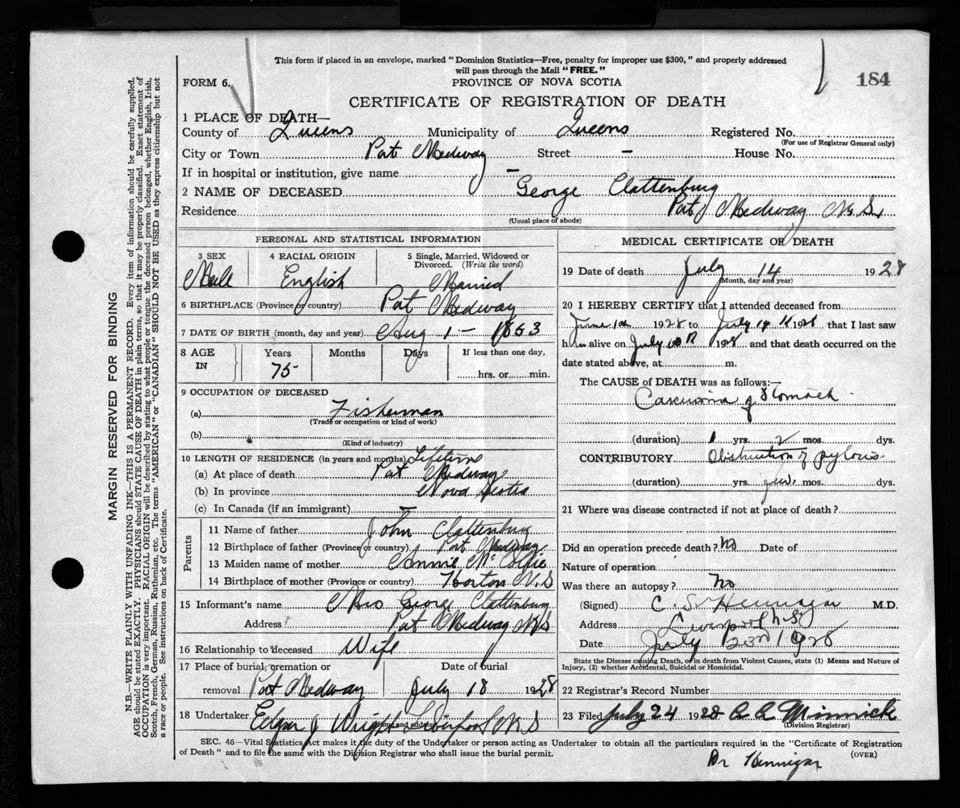 This form if placed in an envelope, marked "Dominion Statistics—Free, penalty for improper use $300," and properly addressed
will pass through the Mail "FREE."
FORM 6.
PROVINCE OF NOVA SCOTIA
184
CERTIFICATE OF REGISTRATION OF DEATH
1 PLACE OF DEATH—
County of Queens Municipality of Queens Registered No.
(For use of Registrar General only)
City or Town Port Medway Street – House No.
If in hospital or institution, give name –
2 NAME OF DECEASED George Clattenburg
Residence Port Medway N.S.
(Usual place of abode)
PERSONAL AND STATISTICAL INFORMATION
3 SEX 4 RACIAL ORIGIN 5 Single, Married, Widowed or
Divorced. (Write the word)
Male English Married
6 BIRTHPLACE (Province or country) Port Medway
7 DATE OF BIRTH (month, day and year) Aug 1 – 1853
8 AGE IN Years Months Days If less than one day,
75 hrs. or min.
9 OCCUPATION OF DECEASED
(a) Fisherman
(Trade or occupation or kind of work)
(b)
(Kind of industry)
10 LENGTH OF RESIDENCE (in years and months) Lifetime
(a) At place of death Port Medway
(b) In province Nova Scotia
(c) In Canada (if an immigrant) –
Parents
11 Name of father John Clattenburg
12 Birthplace of father (Province or country) Port Medway
13 Maiden name of mother Annie
14 Birthplace of mother (Province or country) Horton N.S
15 Informant's name Mrs George Clattenburg
Address Port Medway N.S
16 Relationship to deceased Wife
17 Place of burial, cremation or Date of burial
removal Port Medway July 18 1928
18 Undertaker Edgar J Wright Liverpool N.S
MEDICAL CERTIFICATE OF DEATH
19 Date of death July 14 1928
(Month, day and year)
20 I HEREBY CERTIFY that I attended deceased from
June 1928 to July 1928 that I last saw
h alive on July 1928 and that death occurred on the
date stated above, at m.
The CAUSE OF DEATH was as follows:—
Carcinoma of Stomach
(duration) 1 yrs. 2 mos. dys.
CONTRIBUTORY Obstruction of pylorus
(duration) yrs. few mos. dys.
21 Where was disease contracted if not at place of death?
Did an operation precede death? No Date of
Nature of operation
Was there an autopsy? No
(Signed) C. S. Hennigar M.D.
Address Liverpool N.S.
Date July 23rd 1928
State the Disease causing Death, or in death from Violent Causes, state (1) Means and Nature of
Injury, (2) whether Accidental, Suicidal or Homicidal.
22 Registrar's Record Number
23 Filed July 24 1928 Minnick
(Division Registrar)
SEC. 46—Vital Statistics Act makes it the duty of the Undertaker or person acting as Undertaker to obtain all the particulars required in the "Certificate of Registration
of Death" and to file the same with the Division Registrar who shall issue the burial permit.
Dr Hennigar
MARGIN RESERVED FOR BINDING
N.B.—WRITE PLAINLY WITH UNFADING INK—THIS IS A PERMANENT RECORD. Every item of information should be carefully supplied.
AGE should be stated EXACTLY. PHYSICIANS should STATE CAUSE OF DEATH in plain terms, so that it may be properly classified. Exact statement of
OCCUPATION is very important. RACIAL ORIGIN will be described by stating to what people or tongue the deceased person belonged, whether English, Irish,
Scotch, French, German, Russian, Ruthenian, etc. The terms "AMERICAN" or "CANADIAN" SHOULD NOT BE USED as they express citizenship but not
a race or people. See instructions on back of Certificate.